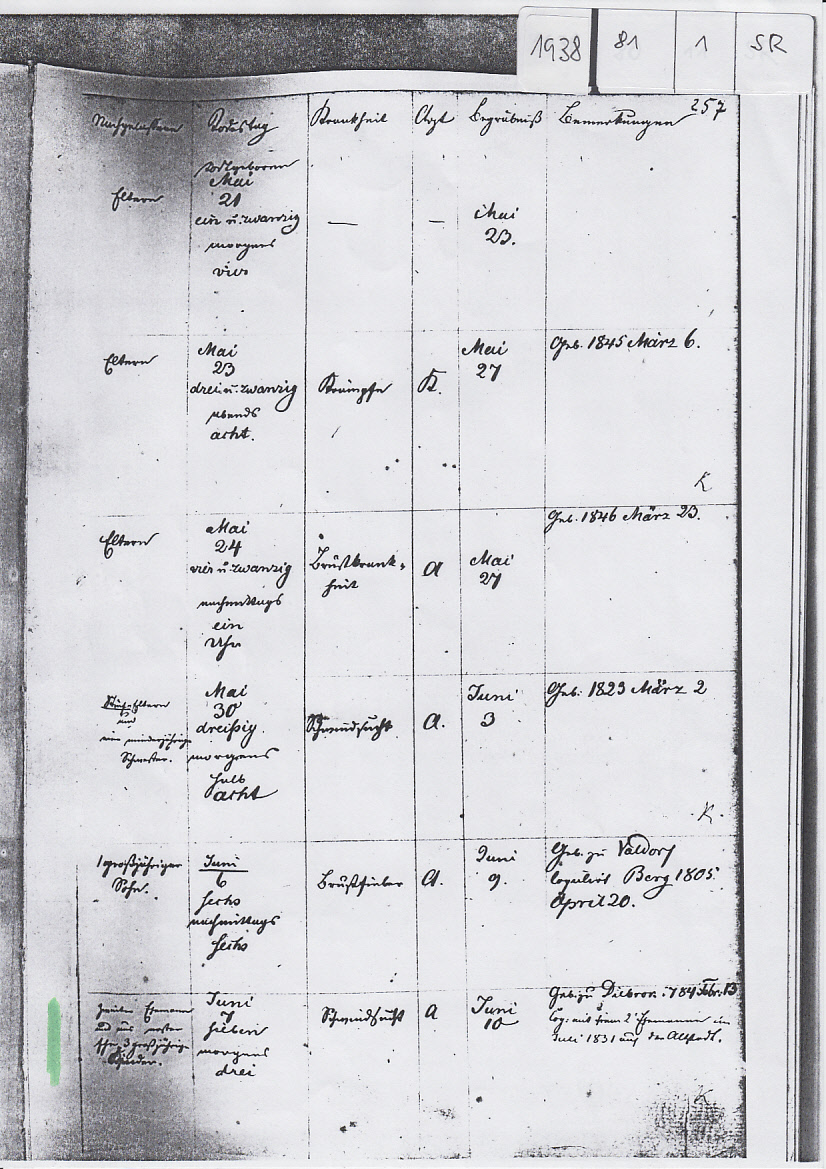 1938 81 1 SR
257
Nachgelassene Todestag Krankheit Arzt Begräbniß Bemerkungen
todtgeboren
Mai
Eltern 21
ein u. zwanzig — — Mai
morgens 23.
vier
Mai Mai Geb. 1845 März 6.
Eltern 23 27
drei u. zwanzig Krämpfe K.
abends
acht.
K
Mai Geb. 1846 März 23.
Eltern 24
vier u. zwanzig Brustkrank- A Mai
heit 27
nachmittags
ein
Uhr
Mai Juni Geb. 1823 März 2
Stief-Eltern 30 3
und dreißig Schwindsucht A.
eine minderjährige
Schwester. morgens
halb
acht
K.
1 großjähriger Juni Juni Geb. zu Valdorf
Sohn. 6 Brustfieber A. 9. copulirt Berg 1805
sechs April 20.
nachmittags
sechs
zweiten Ehemann Juni Juni Geb. zu
und aus erster 7 Schwindsucht A 10 cop. mit ihrem 2 Ehemanne im
Ehe 3 großjährige sieben Juli 1831 auf der Altstadt.
Kinder. morgens
drei
K